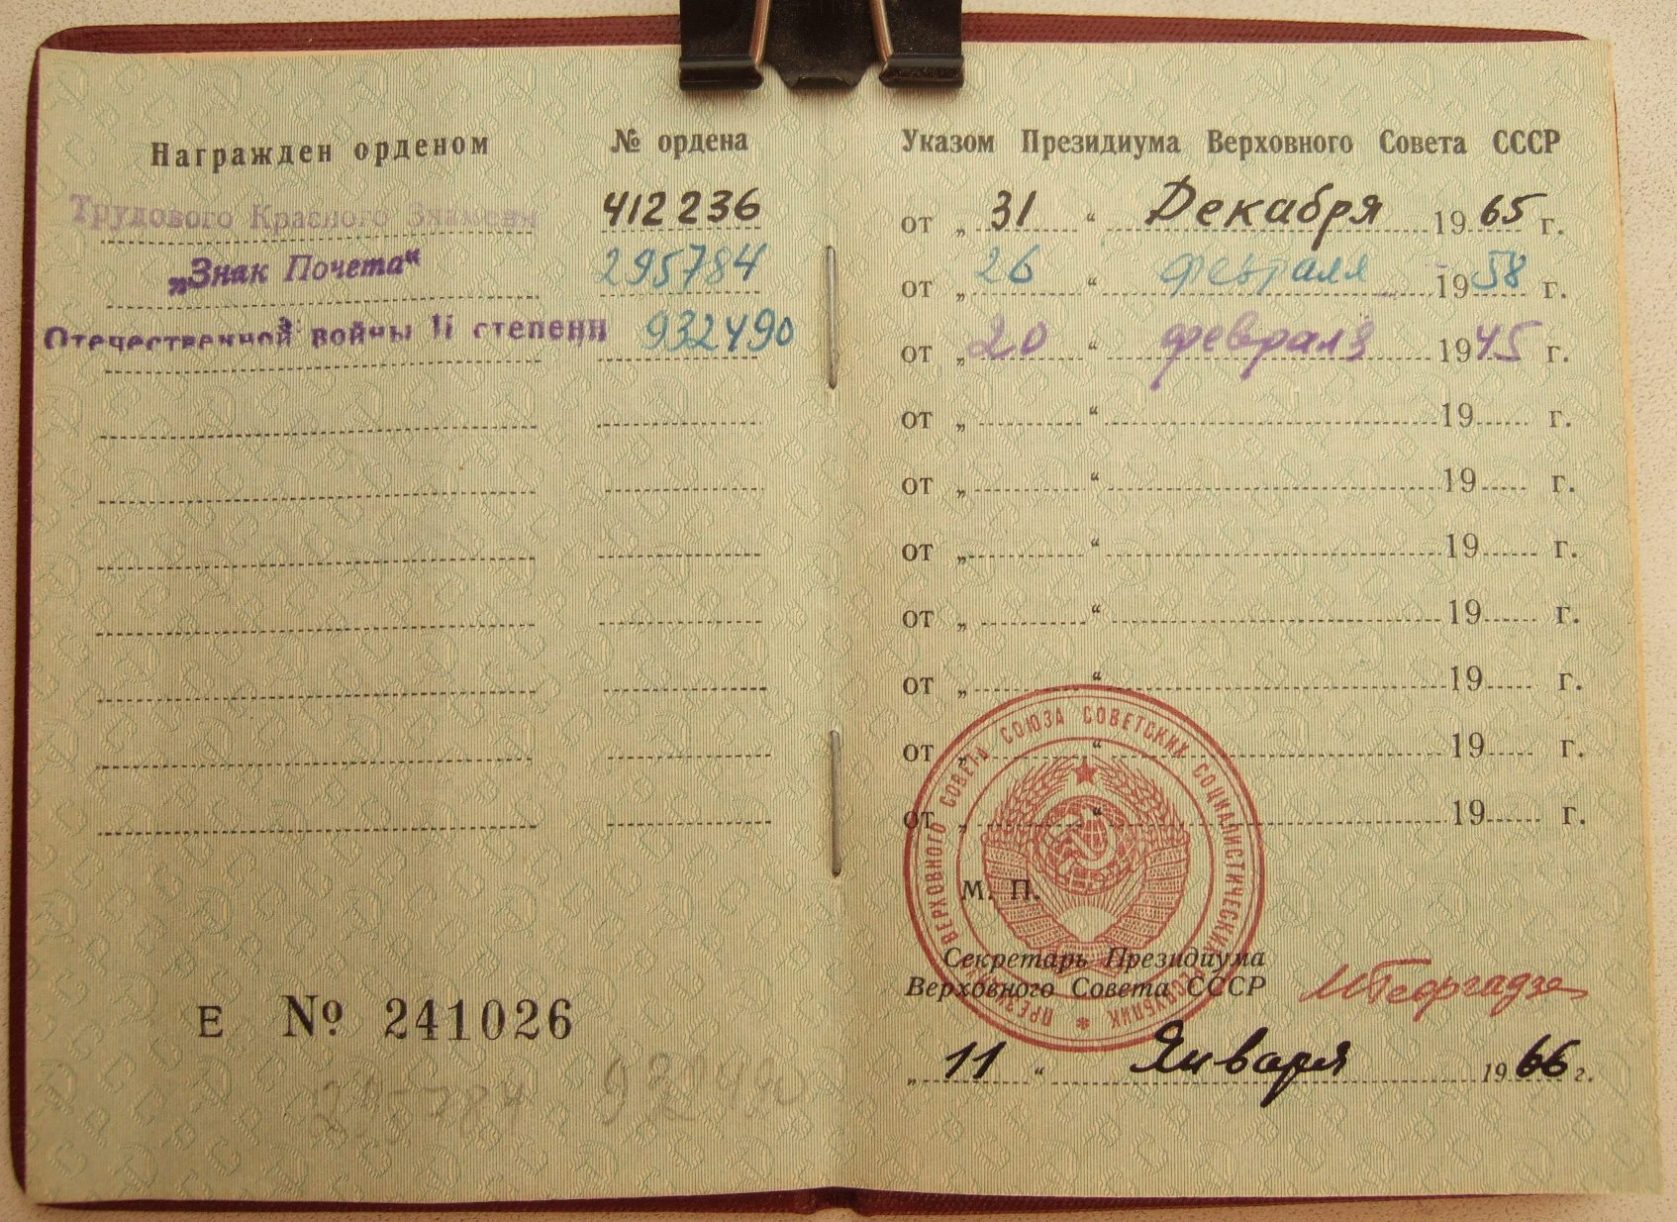 Награжден орденом № ордена
Трудового Красного Знамени 412236
„Знак Почета“ 295784
Отечественной войны II степени 932490
Е № 241026
295784 932490
Указом Президиума Верховного Совета СССР
от „31“ Декабря 1965 г.
от „26“ февраля 1958 г.
от „20“ февраля 1945 г.
от „ “ 19 г.
от „ “ 19 г.
от „ “ 19 г.
от „ “ 19 г.
от „ “ 19 г.
от „ “ 19 г.
от „ “ 19 г.
ПРЕЗИДИУМ ВЕРХОВНОГО СОВЕТА СОЮЗА СОВЕТСКИХ СОЦИАЛИСТИЧЕСКИХ РЕСПУБЛИК *
М. П.
Секретарь Президиума
Верховного Совета СССР МГеоргадзе
„11“ Января 1966 г.